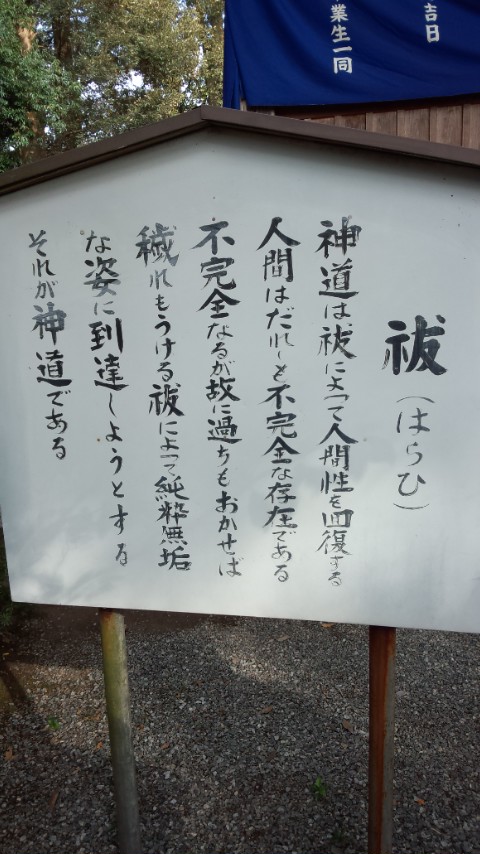 吉日
業生一同
祓（はらひ）
神道は祓によって人間性を回復する
人間はだれしも不完全な存在である
不完全なるが故に過ちもおかせば
穢れもうける祓によって純粋無垢
な姿に到達しようとする
それが神道である